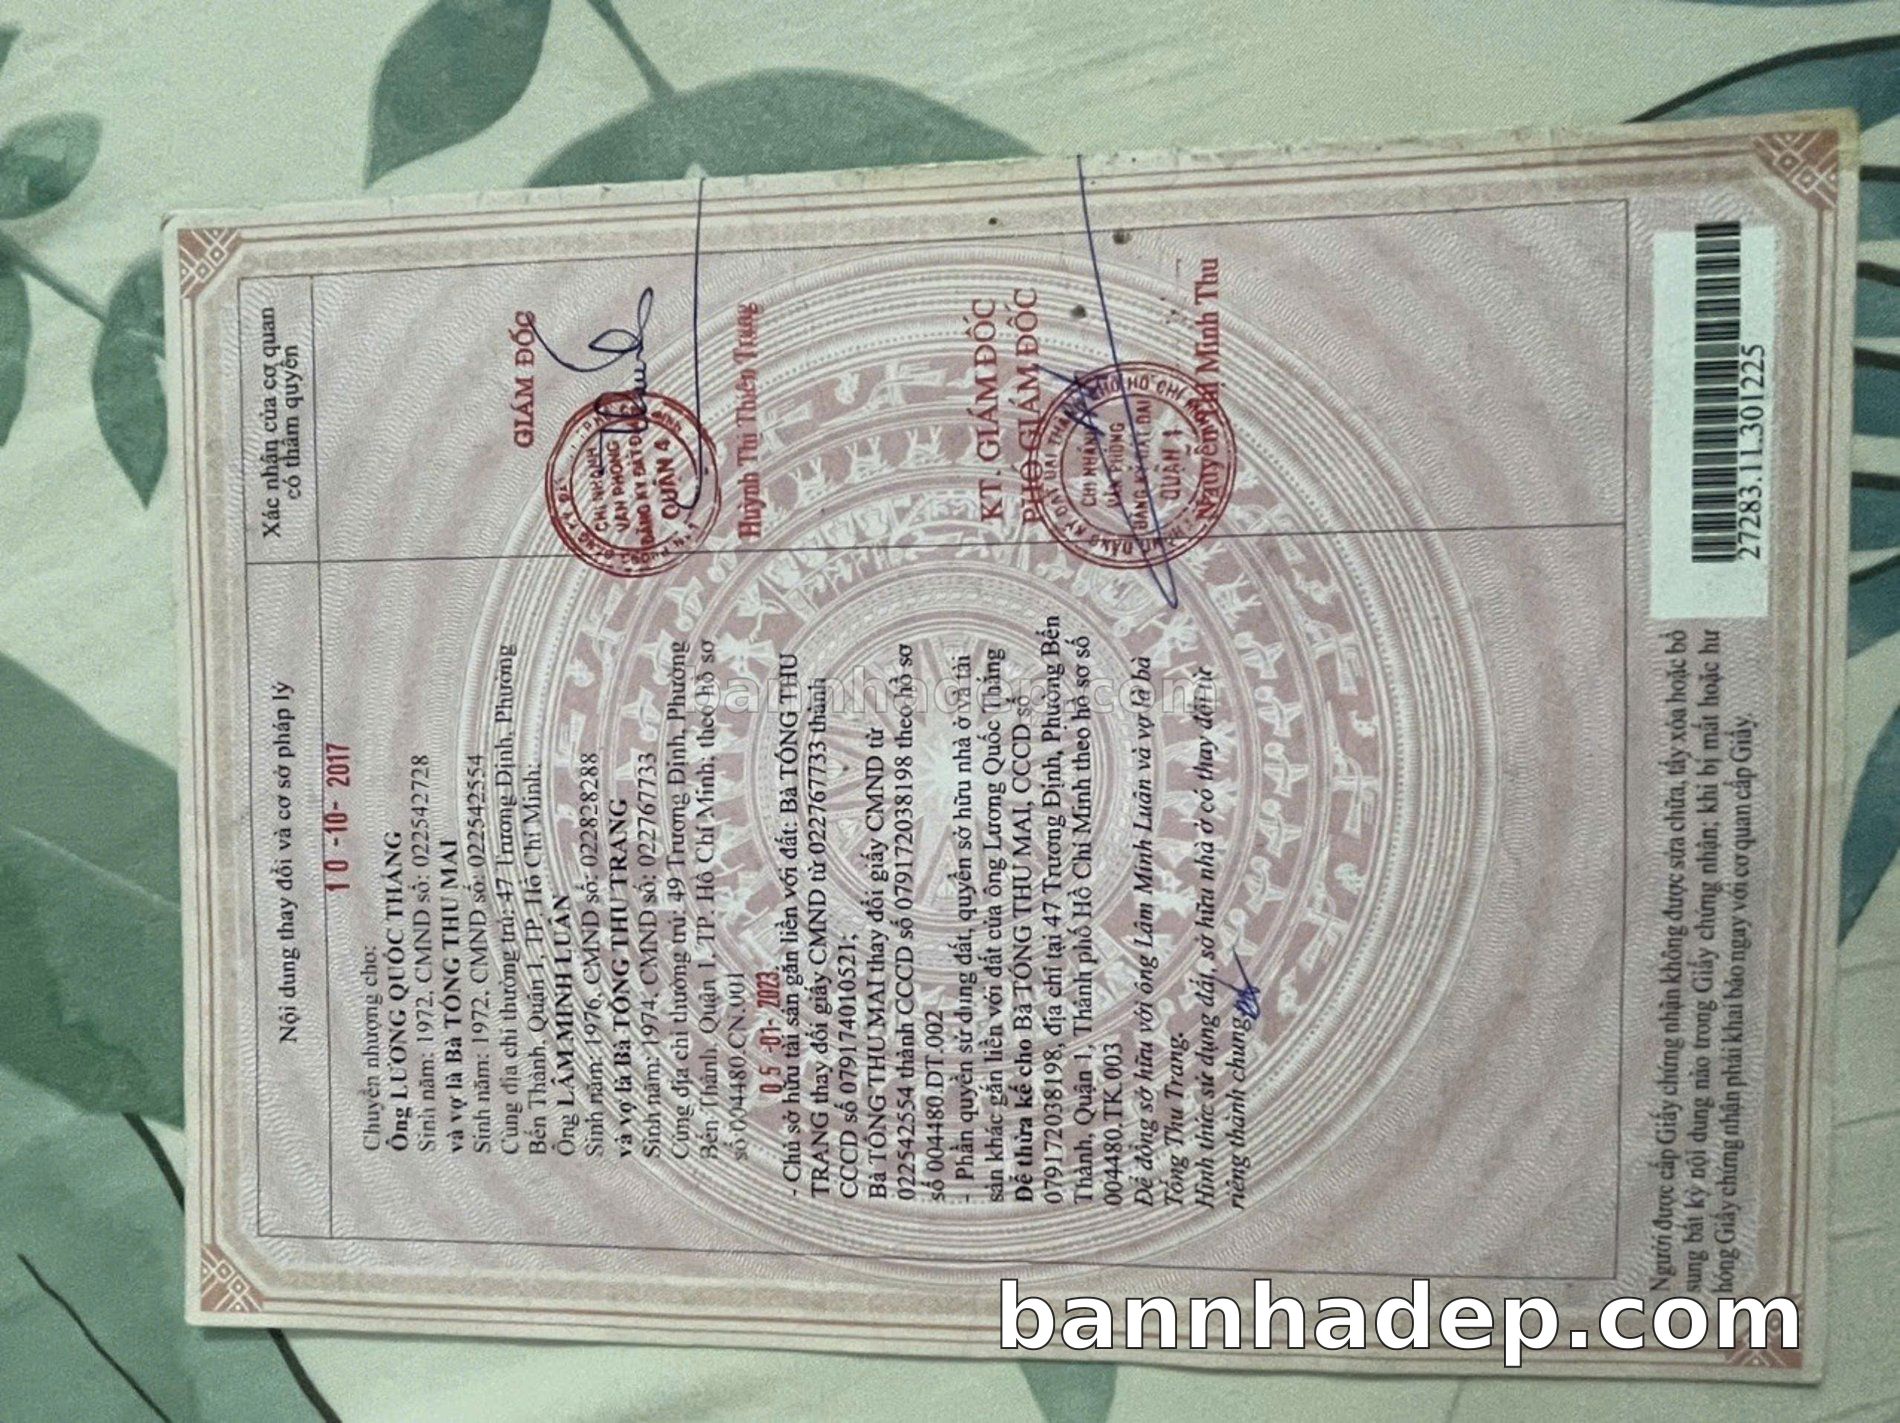 Nội dung thay đổi và cơ sở pháp lý
Xác nhận của cơ quan
có thẩm quyền
10 -10- 2017
Chuyển nhượng cho:
Ông LƯƠNG QUỐC THẮNG
Sinh năm: 1972, CMND số: 022542728
và vợ là Bà TỐNG THU MAI
Sinh năm: 1972, CMND số: 022542554
Cùng địa chỉ thường trú: 47 Trương Định, Phường
Bến Thành, Quận 1, TP. Hồ Chí Minh;
Ông LÂM MINH LUÂN
Sinh năm: 1976, CMND số: 022828288
và vợ là Bà TỐNG THU TRANG
Sinh năm: 1974, CMND số: 022767733
Cùng địa chỉ thường trú: 49 Trương Định, Phường
Bến Thành, Quận 1, TP. Hồ Chí Minh; theo hồ sơ
số 004480.CN.001
GIÁM ĐỐC
CHI NHÁNH
VĂN PHÒNG
ĐĂNG KÝ ĐẤT ĐAI
QUẬN 4
Huỳnh Thị Thiên Trang
05 -01- 2023
- Chủ sở hữu tài sản gắn liền với đất: Bà TỐNG THU
TRANG thay đổi giấy CMND từ 022767733 thành
CCCD số 079174010521;
Bà TỐNG THU MAI thay đổi giấy CMND từ
022542554 thành CCCD số 079172038198 theo hồ sơ
số 004480.DT.002
- Phần quyền sử dụng đất, quyền sở hữu nhà ở và tài
sản khác gắn liền với đất của ông Lương Quốc Thắng
Để thừa kế cho Bà TỐNG THU MAI, CCCD số
079172038198, địa chỉ tại 47 Trương Định, Phường Bến
Thành, Quận 1, Thành phố Hồ Chí Minh theo hồ sơ số
004480.TK.003
Để đồng sở hữu với ông Lâm Minh Luân và vợ là bà
Tống Thu Trang.
Hình thức sử dụng đất, sở hữu nhà ở có thay đổi từ
riêng thành chung.
KT. GIÁM ĐỐC
PHÓ GIÁM ĐỐC
CHI NHÁNH
VĂN PHÒNG
ĐĂNG KÝ ĐẤT ĐAI
QUẬN 1
Nguyễn Thị Minh Thu
Người được cấp Giấy chứng nhận không được sửa chữa, tẩy xóa hoặc bổ
sung bất kỳ nội dung nào trong Giấy chứng nhận; khi bị mất hoặc hư
hỏng Giấy chứng nhận phải khai báo ngay với cơ quan cấp Giấy.
27283.11.301225
bannhadep.com
bannhadep.com